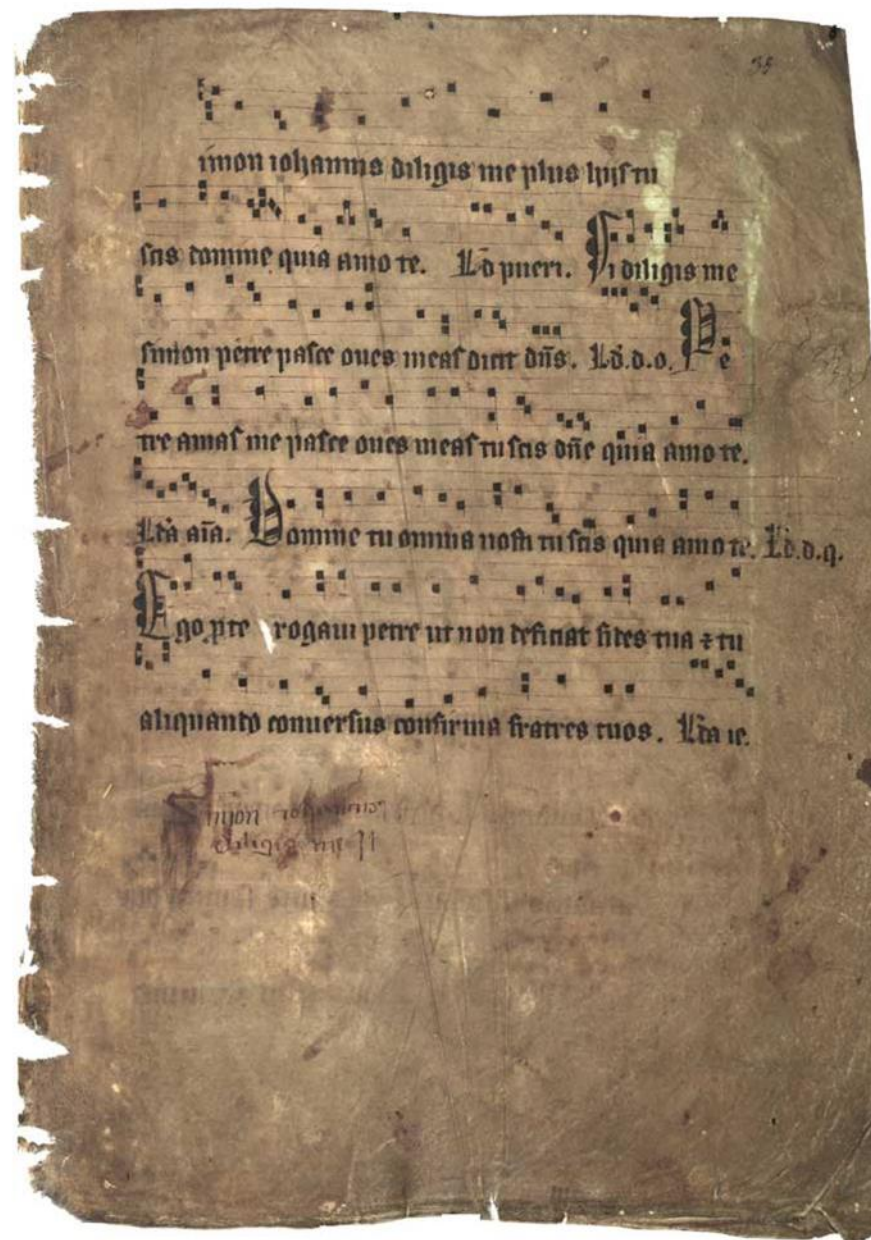 35
imon iohannis diligis me plus hijs tu
scis domine quia amo te. Ld pueri. Si diligis me
simon petre pasce oues meas dicit dñs. Ld.d.o. Pe
tre amas me pasce oues meas tu scis dñe quia amo te.
Lta aĩa. Domine tu omnia nosti tu scis quia amo te. Ld.d.q.
Ego pte rogaui petre ut non deficiat fides tua ⁊ tu
aliquando conuersus confirma fratres tuos. Lta ie.
Simon iohannis
diligis me